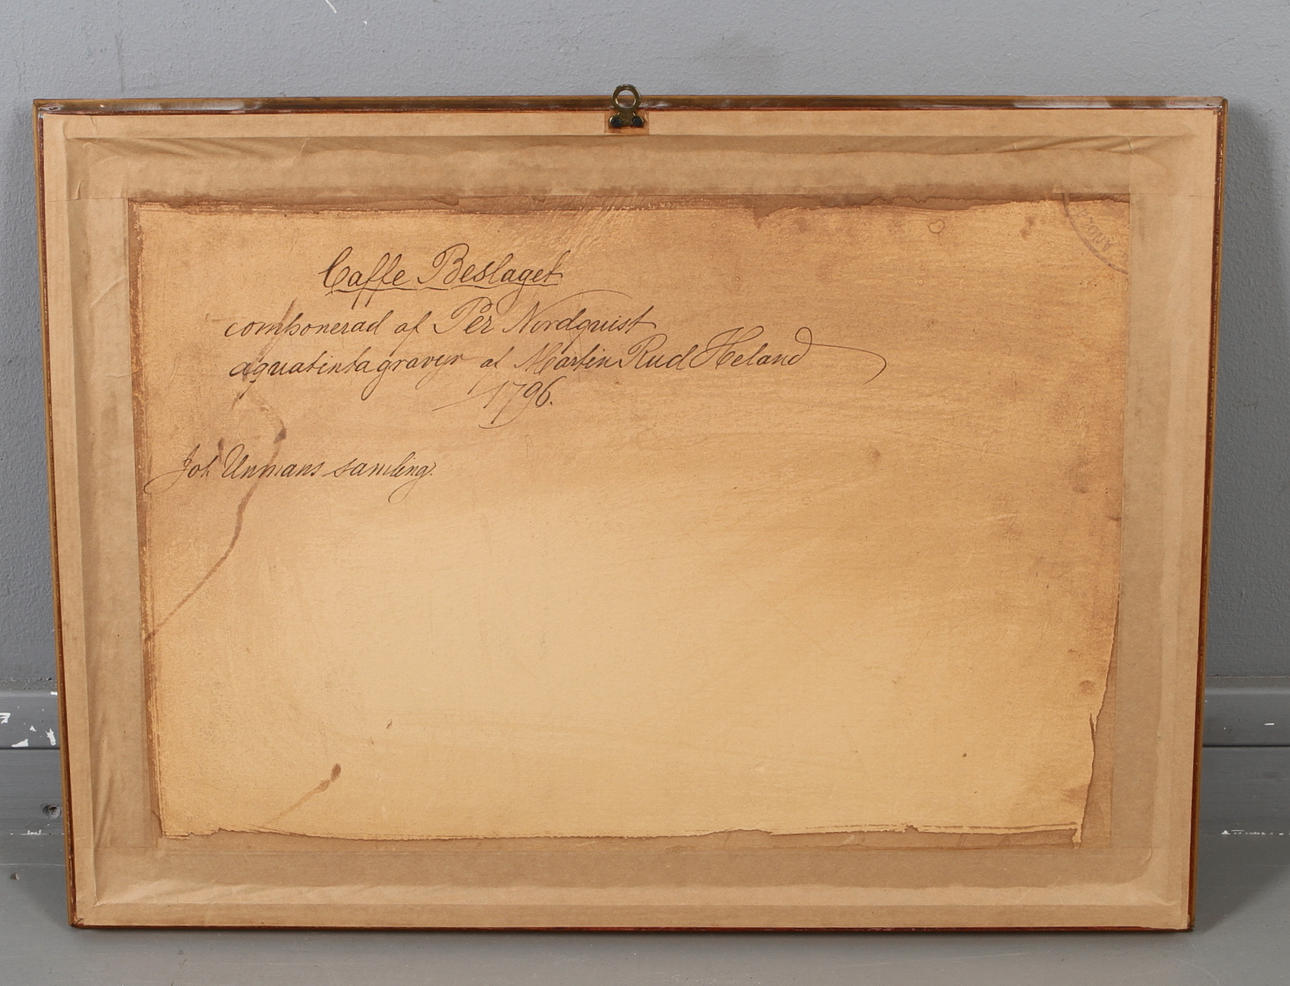 Caffe Beslaget
componerad af Per Nordquist
aquatintagravyr af Martin Rud Heland
1796.
Joh Unmans samling.